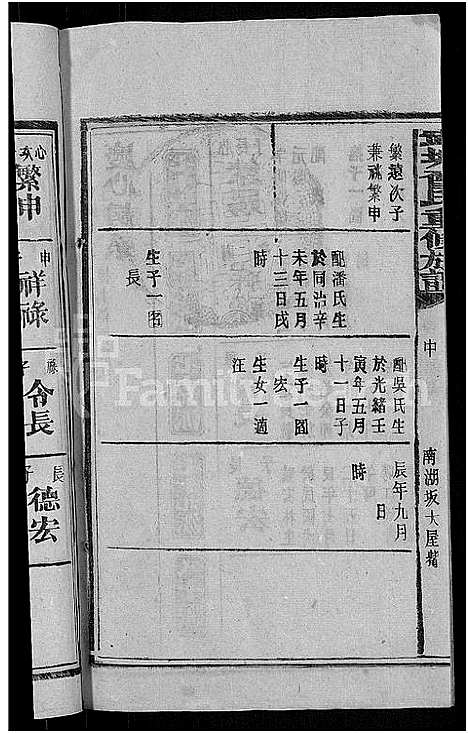 重修族譜
中
南湖坂大屋
繁遠次子
兼祧繁申
配潘氏生
於同治辛
未年五月
十三日戌
時
生子一名
長
配吳氏生
於光緒壬
寅年五月
十一日子
時
生子一園
宏
生女一適
汪
辰年九月
日
時
繁申
申
祥祿
祿子
令長
長子
德宏
FamilySearch